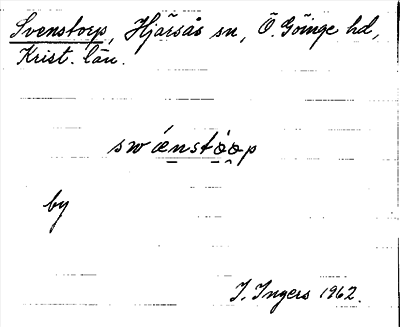 Svenstorp, Hjärsås sn, Ö. Göinge hd,
Krist. län.
swǽnstòo̯p
by
I. Ingers 1962.